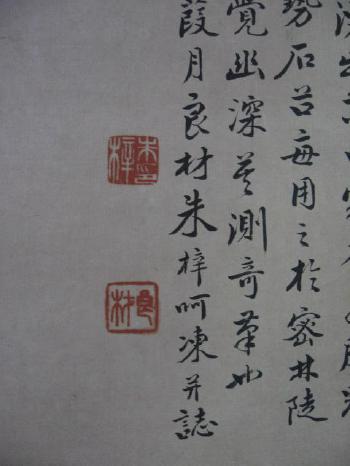 勢石苔每用之於密林陡
覺幽深莫測奇筆也
葭月良材朱梓呵凍并誌
朱印
梓
良材